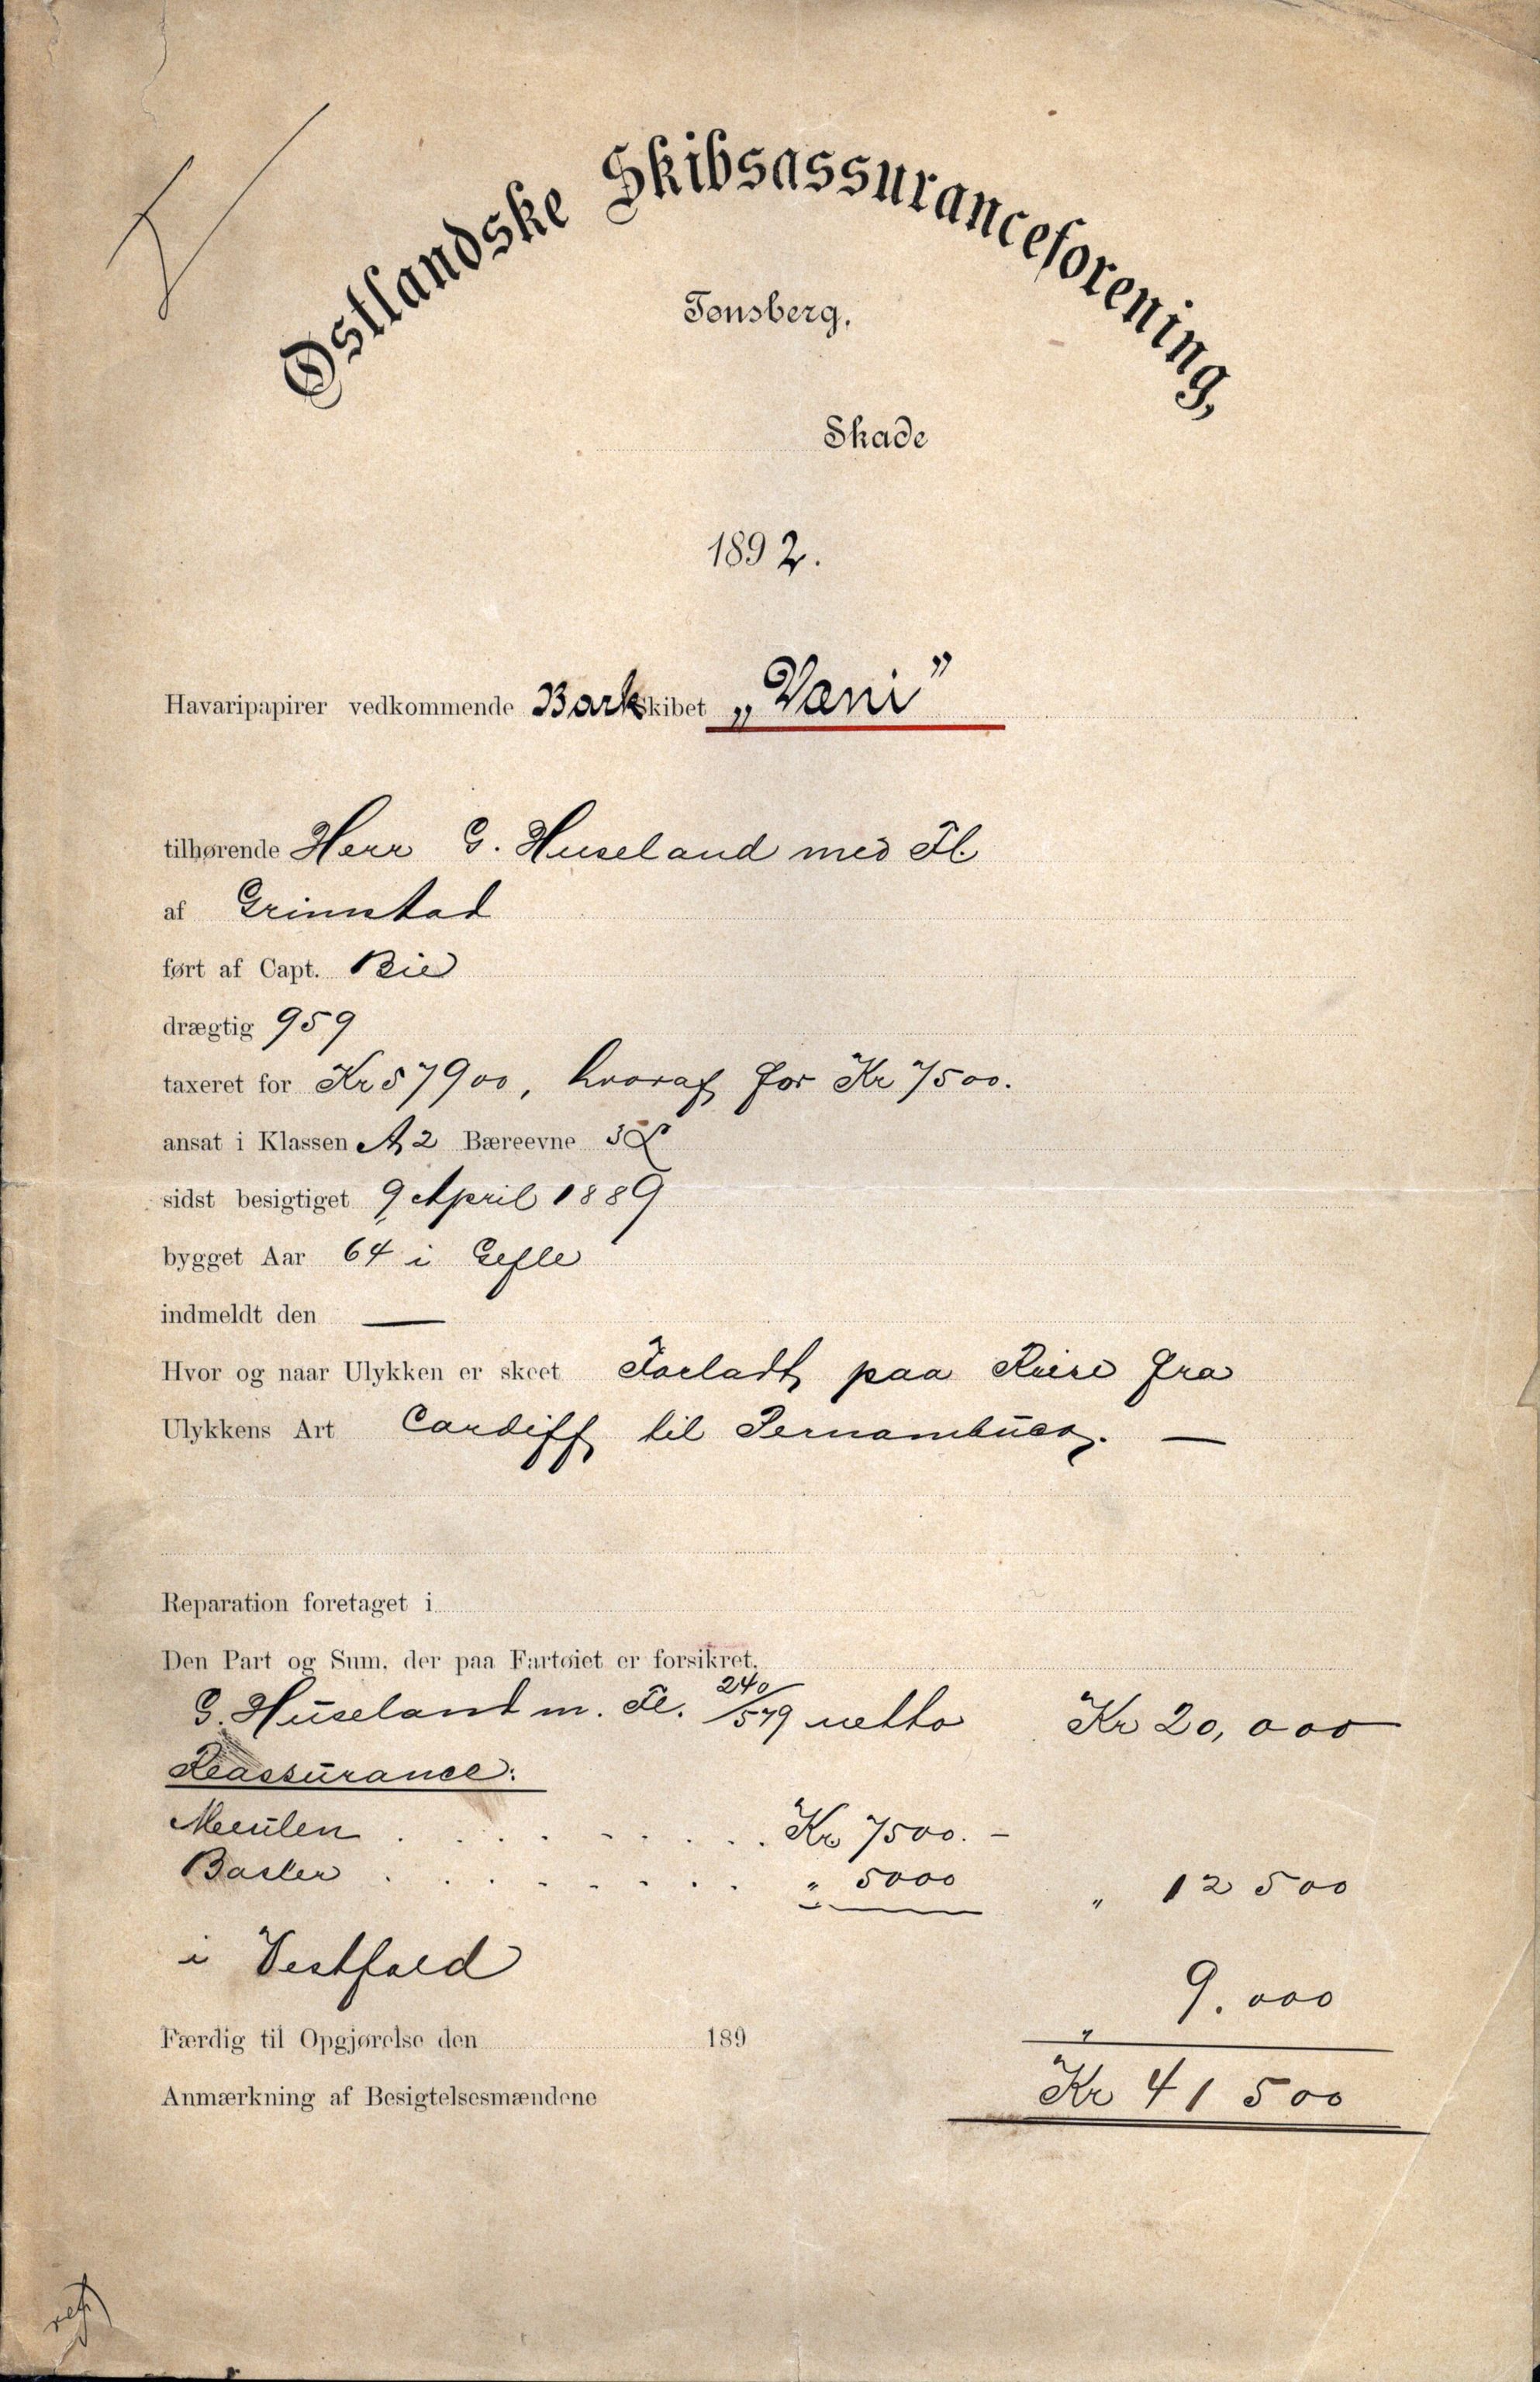 Østlandske Skibsassuranceforening,
Tønsberg.
Skade
1892.
Havaripapirer vedkommende Bark Skibet „Væni"
tilhørende Herr G. Huseland med Fl.
af Grimstad
ført af Capt. Bie
drægtig 959
taxeret for Kr 57900, hvoraf for Kr 7500.
ansat i Klassen A 2 Bæreevne 3 L
sidst besigtiget 9 April 1889
bygget Aar 64 i Gefle
indmeldt den —
Hvor og naar Ulykken er skeet Forladt paa Reise fra
Ulykkens Art Cardiff til Pernambuco. —
Reparation foretaget i
Den Part og Sum, der paa Fartøiet er forsikret.
G. Huseland m. Fl. 240/579 netto Kr 20,000
Reassurance:
Meulen . . . . . . . . . Kr 7500. –
Basler . . . . . . . . . " 5000 " 12500
i Vestfold 9.000
Færdig til Opgjørelse den 189 "
Anmærkning af Besigtelsesmændene Kr 41500